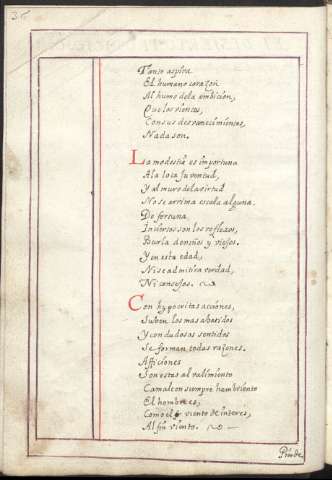 36
Tanto aspira
El humano corazon
Al humo dela ambicion,
Que los vientos,
Con sus desvanecimientos
Nada son.
La modestia es importuna
A la loca Juventud,
Y al muro dela virtud
No se arrima escala alguna.
De fortuna
Inciertos son los reflexos,
Burla de niños y viejos.
Y en esta edad,
Ni se admitira verdad,
Ni consejos.
Con hypocritas acciones,
Suben los mas abatidos
Y con dudosos sentidos
Se forman todas razones.
Afficiones
Son estas al valimiento
Camaleon siempre hambriento
El hombre es,
Como el viento de interes,
Al fin viento.